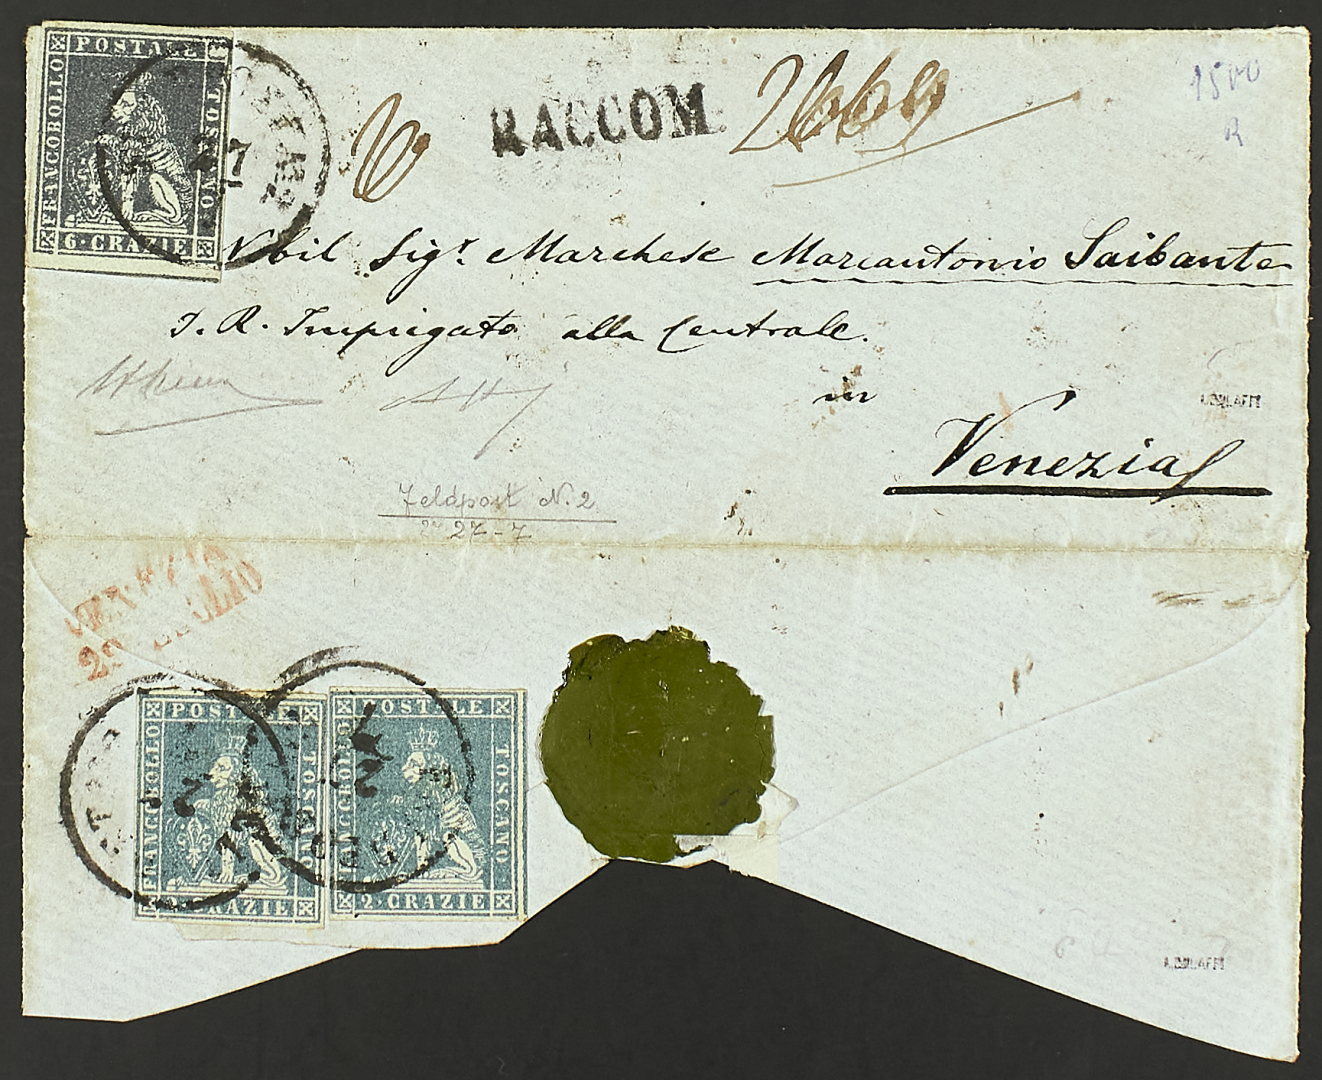 POSTALE
FRANCOBOLLO
TOSCANO
6·CRAZIE
27
6
RACCOM.
2669
1500
R
Nobil Sig.r Marchese Marcantonio Saibante
I. R. Impiegato alla Centrale.
in
Venezia
Feldpost N. 2
27-7
VENEZIA
29 LUGLIO
POSTALE
FRANCOBOLLO
TOSCANO
2·CRAZIE
POSTALE
FRANCOBOLLO
TOSCANO
2·CRAZIE